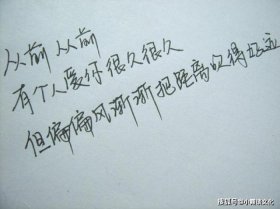 从前从前
有个人爱你很久很久
但偏偏风渐渐把距离吹得好远
搜狐号@小嘴谈文化